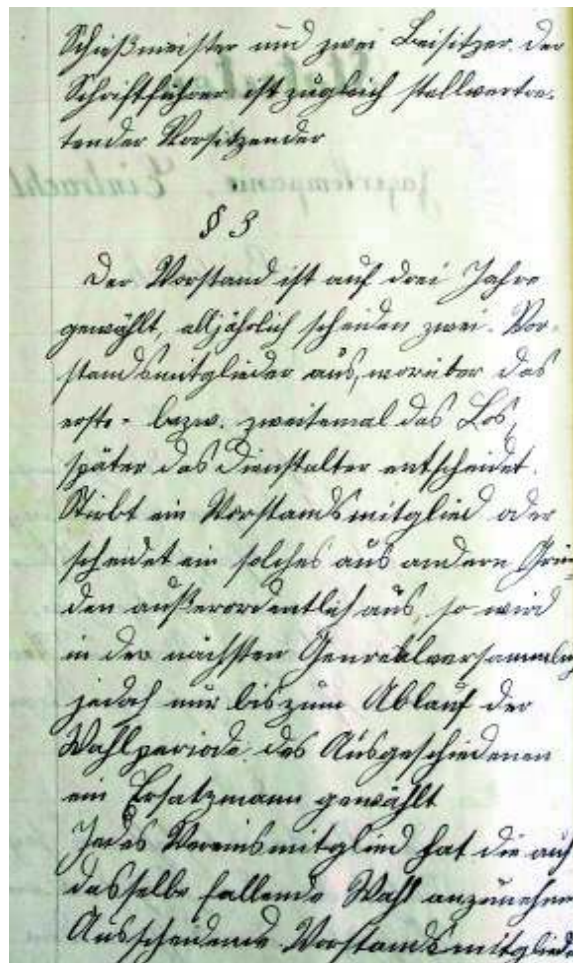 Schießmeister und zwei Beisitzer. der
Schriftführer ist zugleich stellvertre-
tender Vorsitzender
§ 3
Der Vorstand ist auf drei Jahre
gewählt, alljährlich scheiden zwei Vor-
standsmitglieder aus, worüber das
erste- bezw. zweitemal das Los,
später das Dienstalter entscheidet.
Stirbt ein Vorstandsmitglied oder
scheidet ein solches aus andern Grün-
den außerordentlich aus, so wird
in der nächsten Genrealversammlung
jedoch nur bis zum Ablauf der
Wahlperiode des Ausgeschiedenen
ein Ersatzmann gewählt
Jedes Vereinsmitglied hat die auf
dasselbe fallende Wahl anzunehmen
Ausscheidende Vorstandsmitglieder